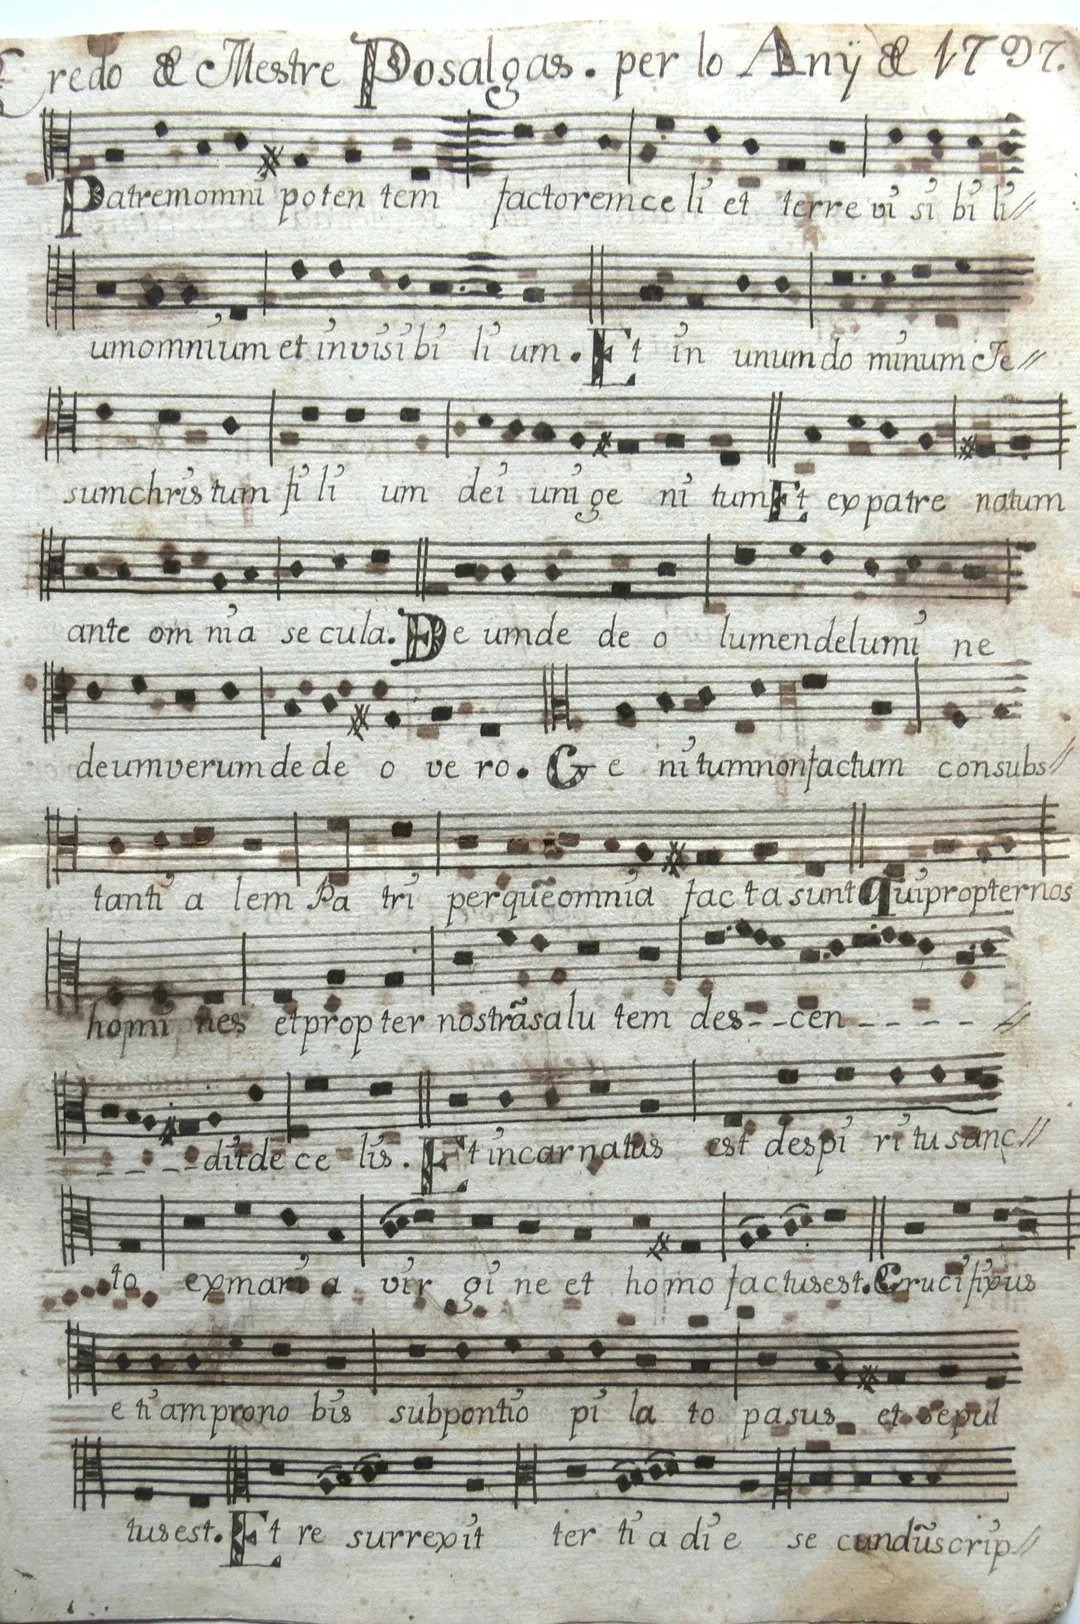 Credo de Mestre Posalgas. per lo Anÿ de 1797.
Patrem omni poten tem factorem ce li et terre vi si bi li//
um omnium et invisi bi li um. Et in unum do minum Je//
sum chris tum fi li um dei uni ge ni tum Et ex patre natum
ante om nia se cula. De um de de o lumen de lumi ne
deum verum de de o ve ro. Ge ni tum non factum consubs//
tanti a lem Pa tri per quē omnia fac ta sunt qui propter nos
homi nes et prop ter nostrā salu tem des - - cen - - - - - //
- - - - dit de ce lis. Et incarnatus est de spi ri tu sanc//
to ex mari a vir gi ne et homo factus est. Crucifixus
e ti am pro no bis sub pontio pi la to pasus et sepul
tus est. Et re surrexit ter ti a di e se cundūs crip//